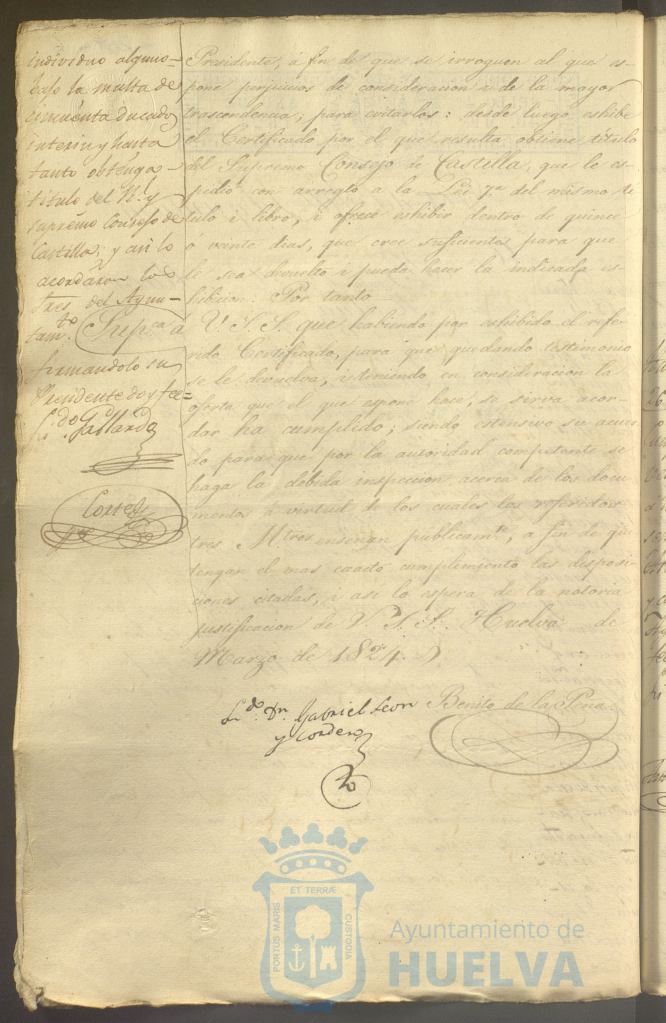 individuo alguno
bajo la multa de
cincuenta ducados
interin y hasta
tanto obtenga
titulo del R.l y
supremo Consejo de
Castilla; y asi lo
acordaron los
Sres. del Ayun-
tam.to
firmandolo su
Presidente doy fee=
L.do Gallardo
Cortes
Presidente, á fin de que se irroguen al que es-
pone perjuicios de consideracion i de la mayor
trascendencia; para evitarlos: desde luego eshibe
el Certificado por el que resulta obtiene titulo
del Supremo Consejo de Castilla, que le es-
pidió con arreglo a la Lei 7.a del mismo ti-
tulo i libro, i ofrece eshibir dentro de quince
ó vainte dias, que cree suficientes para que
le sea devuelto i pueda hacer la indicada es-
hibicion: Por tanto
Sup.ca á V. S. S. que habiendo por eshibido el refe-
rido Certificado, para que quedando testimonio
se le devuelva, i teniendo en consideracion la
oferta que el que espone hace, se sirva acor-
dar ha cumplido; siendo estensivo su acuer-
do para que por la autoridad competente se
haga la debida inspeccion acerca de los docu-
mentos á virtud de los cuales los referidos
tres M.tros enseñan publicam.te, a fin de que
tengan el mas exacto cumplimiento las disposi-
ciones citadas, i asi lo espera de la notoria
justificacion de V. S. S. Huelva de
Marzo de 1824.
L.do Dn. Gabriel Leon
y Cordero
Benito de la Peña
PORTUS MARIS
ET TERRÆ
CUSTODIA
Ayuntamiento de
HUELVA